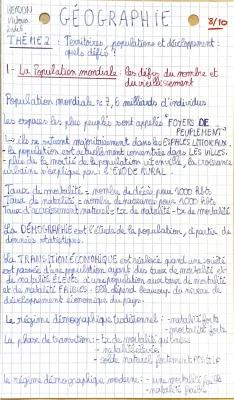 GÉOGRAPHIE
8/10
THÈME 2 : Territoires, populations et développement :
quels défis ?
I - La Population mondiale : les défis du nombre et
du vieillissement
Population mondiale ≈ 7,6 milliards d'individus
Les espaces les plus peuplés sont appelés "FOYERS DE
PEUPLEMENT"
↳ ils se situent majoritairement dans les ESPACES LITTORAUX.
- la population est actuellement concentrée dans LES VILLES.
- plus de la moitié de la population vit en ville, la croissance
urbaine s'explique par : l'EXODE RURAL.
Taux de mortalité = nombre de décès pour 1000 hbts
Taux de natalité = nombre de naissances pour 1000 hbts
Taux d'accroissement naturel = tx de natalité - tx de mortalité
La DÉMOGRAPHIE est l'étude de la population, à partir de
données statistiques.
La TRANSITION ÉCONOMIQUE est réalisée quand une société
est passée d'une population ayant des taux de mortalité et
de natalité ÉLEVÉS à une population aux taux de mortalité
et de natalité FAIBLES : elle dépend beaucoup du niveau de
développement économique du pays.
Le régime démographique traditionnel : - natalité forte
- mortalité forte
La phase de transition : - tx de mortalité qui baisse
- natalité élevée
- solde naturel fortement POSITIF
Le régime démographique moderne : - une mortalité faible
- natalité faible